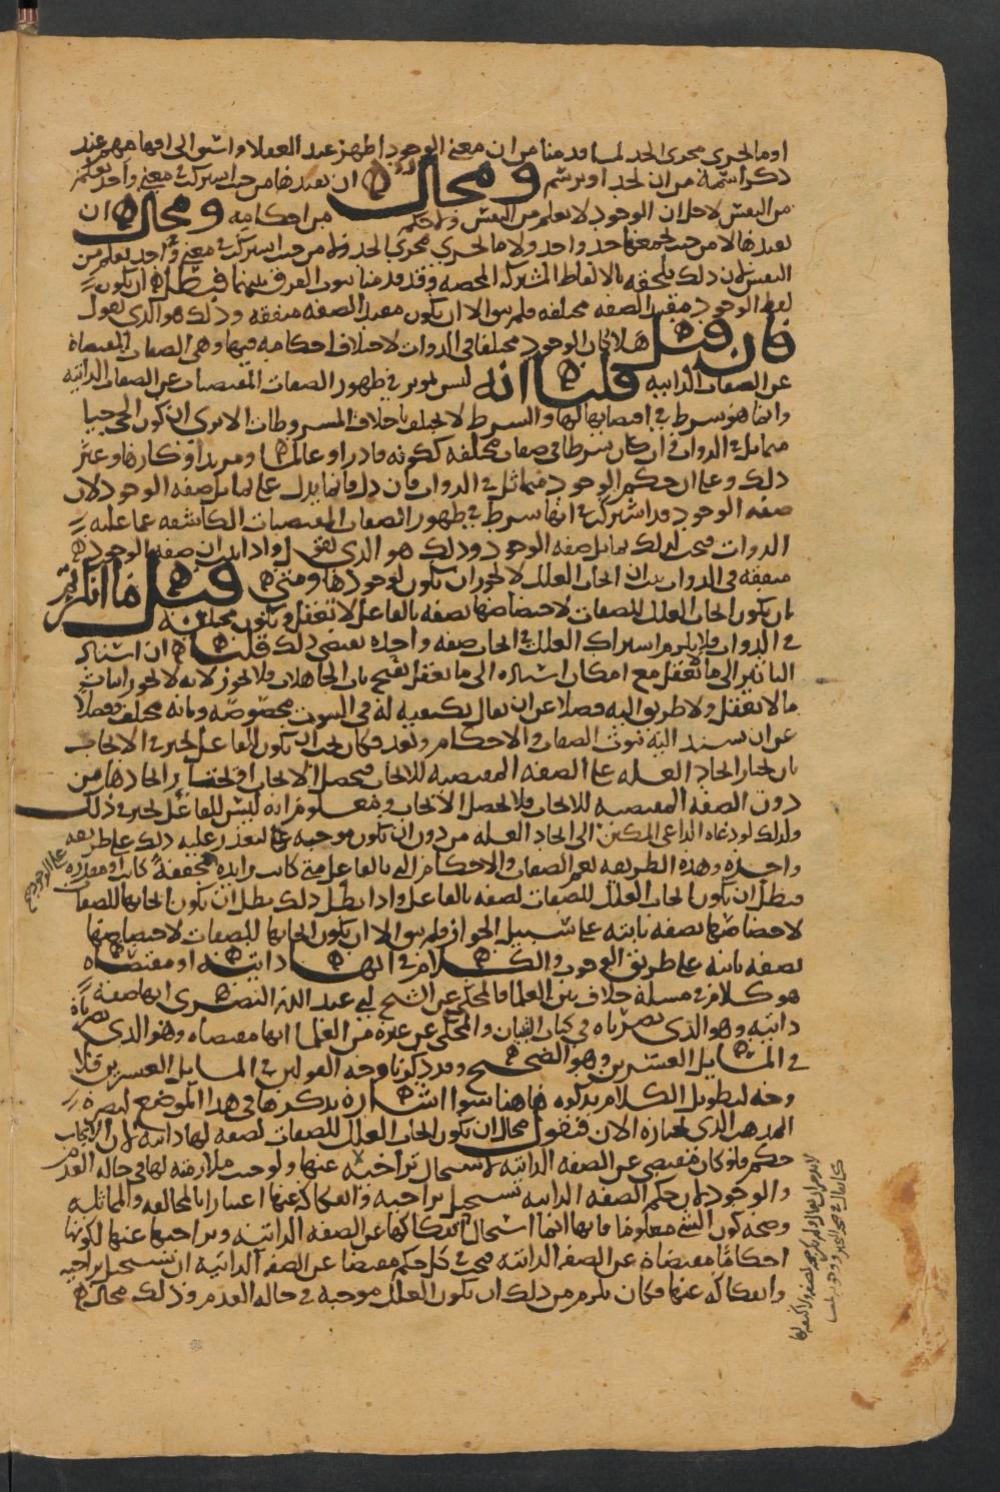 او ما يجري مجرى الحد لما قدمنا من ان معنى الوجود اظهر عند العقلا واسبق الى افهامهم عند
ذكر اسمه من ان يحد او يرسم ومحال ان يفيدها من حيث اشتركت في معنى واحد يعلم
من النفس لاجل ان الوجود لا يعلم من النفس ولا حكم من احكامه ومحال ان
يفيدها لا من حيث يجمعها حد واحد ولا ما يجري مجرى الحد ولا من حيث اشتركت في معنى واحد يعلم من
النفس لان ذلك يلحقه بالالفاظ المشتركه المحضه وقد قدمنا بيان الفرق بينهما فبطل ان يكون
لفظ الوجود مفيد الصفه مختلفه فلم يبق الا ان يكون مفيد الصفه متفقه وذلك هو الذي نقول
فان قيل هلا كان الوجود مختلفا في الذوات لاختلاف احكامه فيها وهي الصفات المقتضاة
عن الصفات الذاتيه قلنا انه ليس بموثر في ظهور الصفات المقتضيات عن الصفات الذاتيه
وانما هو شرط في اقتضائها لها والشرط لا يختلف باختلاف المشروطات الا ترى ان كون الحي حيا
متماثل في الذوات وان كان شرطا في صفات مختلفه ككونه قادرا وعالما ومريدا وكارها وغير
ذلك وعلى ان حكم الوجود متماثل في الذوات فان دل فانما يدل على تماثل صفه الوجود لان
صفه الوجود قد اشتركت في انها شرط في ظهور الصفات المقتضيات الكاشفه عما عليه
الذوات فيجب لذلك تماثل صفه الوجود وذلك هو الذي نقول واذا ثبت ان صفه الوجود
متفقه في الذوات ثبت ان ايجاب العلل لا يجوز ان يكون لوجودها ومتى قيل ما انكرتم
ان يكون ايجاب العلل للصفات لاختصاصها بصفه بالفاعل لا تعقل ويكون مختلفه
في الذوات فلا يلزم اشتراك العلل في ايجاب صفه واحده بعض ذلك قلنا ان اسناد
التاثير الى ما يعقل مع امكان اسناده الى ما يعقل يفتح باب الجهالات ولا يجوز لانه لا يجوز اثبات
ما لا يعقل ولا طريق اليه فضلا عن ان يقال بكيفيه له في الثبوت مخصوصه وبانه مختلف فضلا
عن ان يسند اليه ثبوت الصفات والاحكام وبعد فكان يجب ان يكون الفاعل مخيرا في الايجاب
بان يختار ايجاد العله على الصفه المقتضيه للايجاب فيحصل الايجاب او يختار ايجادها من
دون الصفه المقتضيه للايجاب فلا يحصل الايجاب ومعلوم انه ليس للفاعل تخير في ذلك
ولذلك لو دعاه الداعي المكين الى ايجاد العله من دون ان يكون موجبه لتعذر عليه ذلك على طريقه
واحده وهذه الطريقه تعم الصفات والاحكام التي بالفاعل متى كانت زايده محققة كانت او مقدره
فبطل ان يكون ايجاب العلل للصفات لصفه بالفاعل واذا بطل ذلك بطل ان يكون ايجابها للصفات
لاختصاصها بصفه ثابته على سبيل الجواز فلم يبق الا ان يكون ايجابها للصفات لاختصاصها
بصفه ثابته على طريق الوجوب والكلام في انها ذاتيه او مقتضاه
هو كلام في مسله خلاف بين العلما فالمحكي عن الشيخ ابي عبد الله البصري انها صفه
ذاتيه وهو الذي نصرناه في كتاب البيان والمحكي عن غيره من العلما انها مقتضاه وهو الذي نصرناه
في المسايل العشرين وهو الصحيح وقد ذكرنا وجه القولين في المسايل العشرين فلا
وجه لتطويل الكلام بذكره هاهنا سوا اشاره نذكرها في هذا الموضع لنصره
المذهب الذي نختاره الان فنقول محال ان يكون ايجاب العلل للصفات لصفه لها ذاتيه لان الايجاب
حكم فلو كان مقتضى عن الصفه الذاتيه لاستحال تراخيه عنها ولوجب ملازمته لها في حاله العدم
والوجود لان حكم الصفه الذاتيه يستحيل تراخيه وانفكاكه عنها اعتبارا بالمخالفه والمماثله
وصحه كون الشي معلوما فانها انما استحال انفكاكها عن الصفه الذاتيه وتراخيها عنها لكونها
احكاما مقتضاة عن الصفه الذاتيه فيجب في كل حكم مقتضا عن الصفه الذاتيه ان يستحيل تراخيه
وانفكاكه عنها فكان يلزم من ذلك ان يكون العلل موجبه في حاله العدم وذلك محال